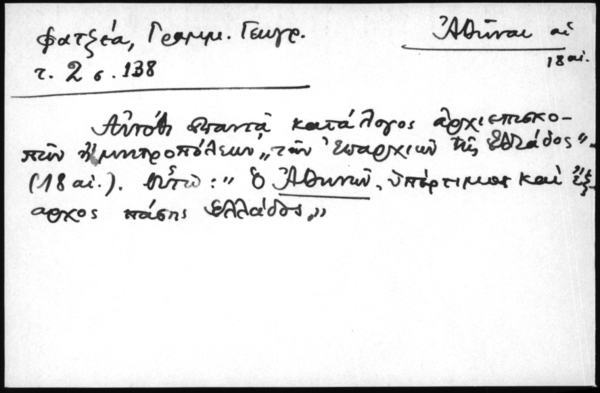 Φατζέα, Γραμμ. Γεωγρ.
Ἀθῆναι αἱ
τ. 2 σ. 138
18 αἰ.
Αὐτόθι ἀπαντᾷ κατάλογος ἀρχιεπισκο-
πῶν ἢ μητροπόλεων „τῶν Ἐπαρχιῶν τῆς Ἑλλάδος".
(18 αἰ.). Οὕτω: " Ὁ Ἀθηνῶν, ὑπέρτιμος καὶ ἔξ-
αρχος πάσης Ἑλλάδος„